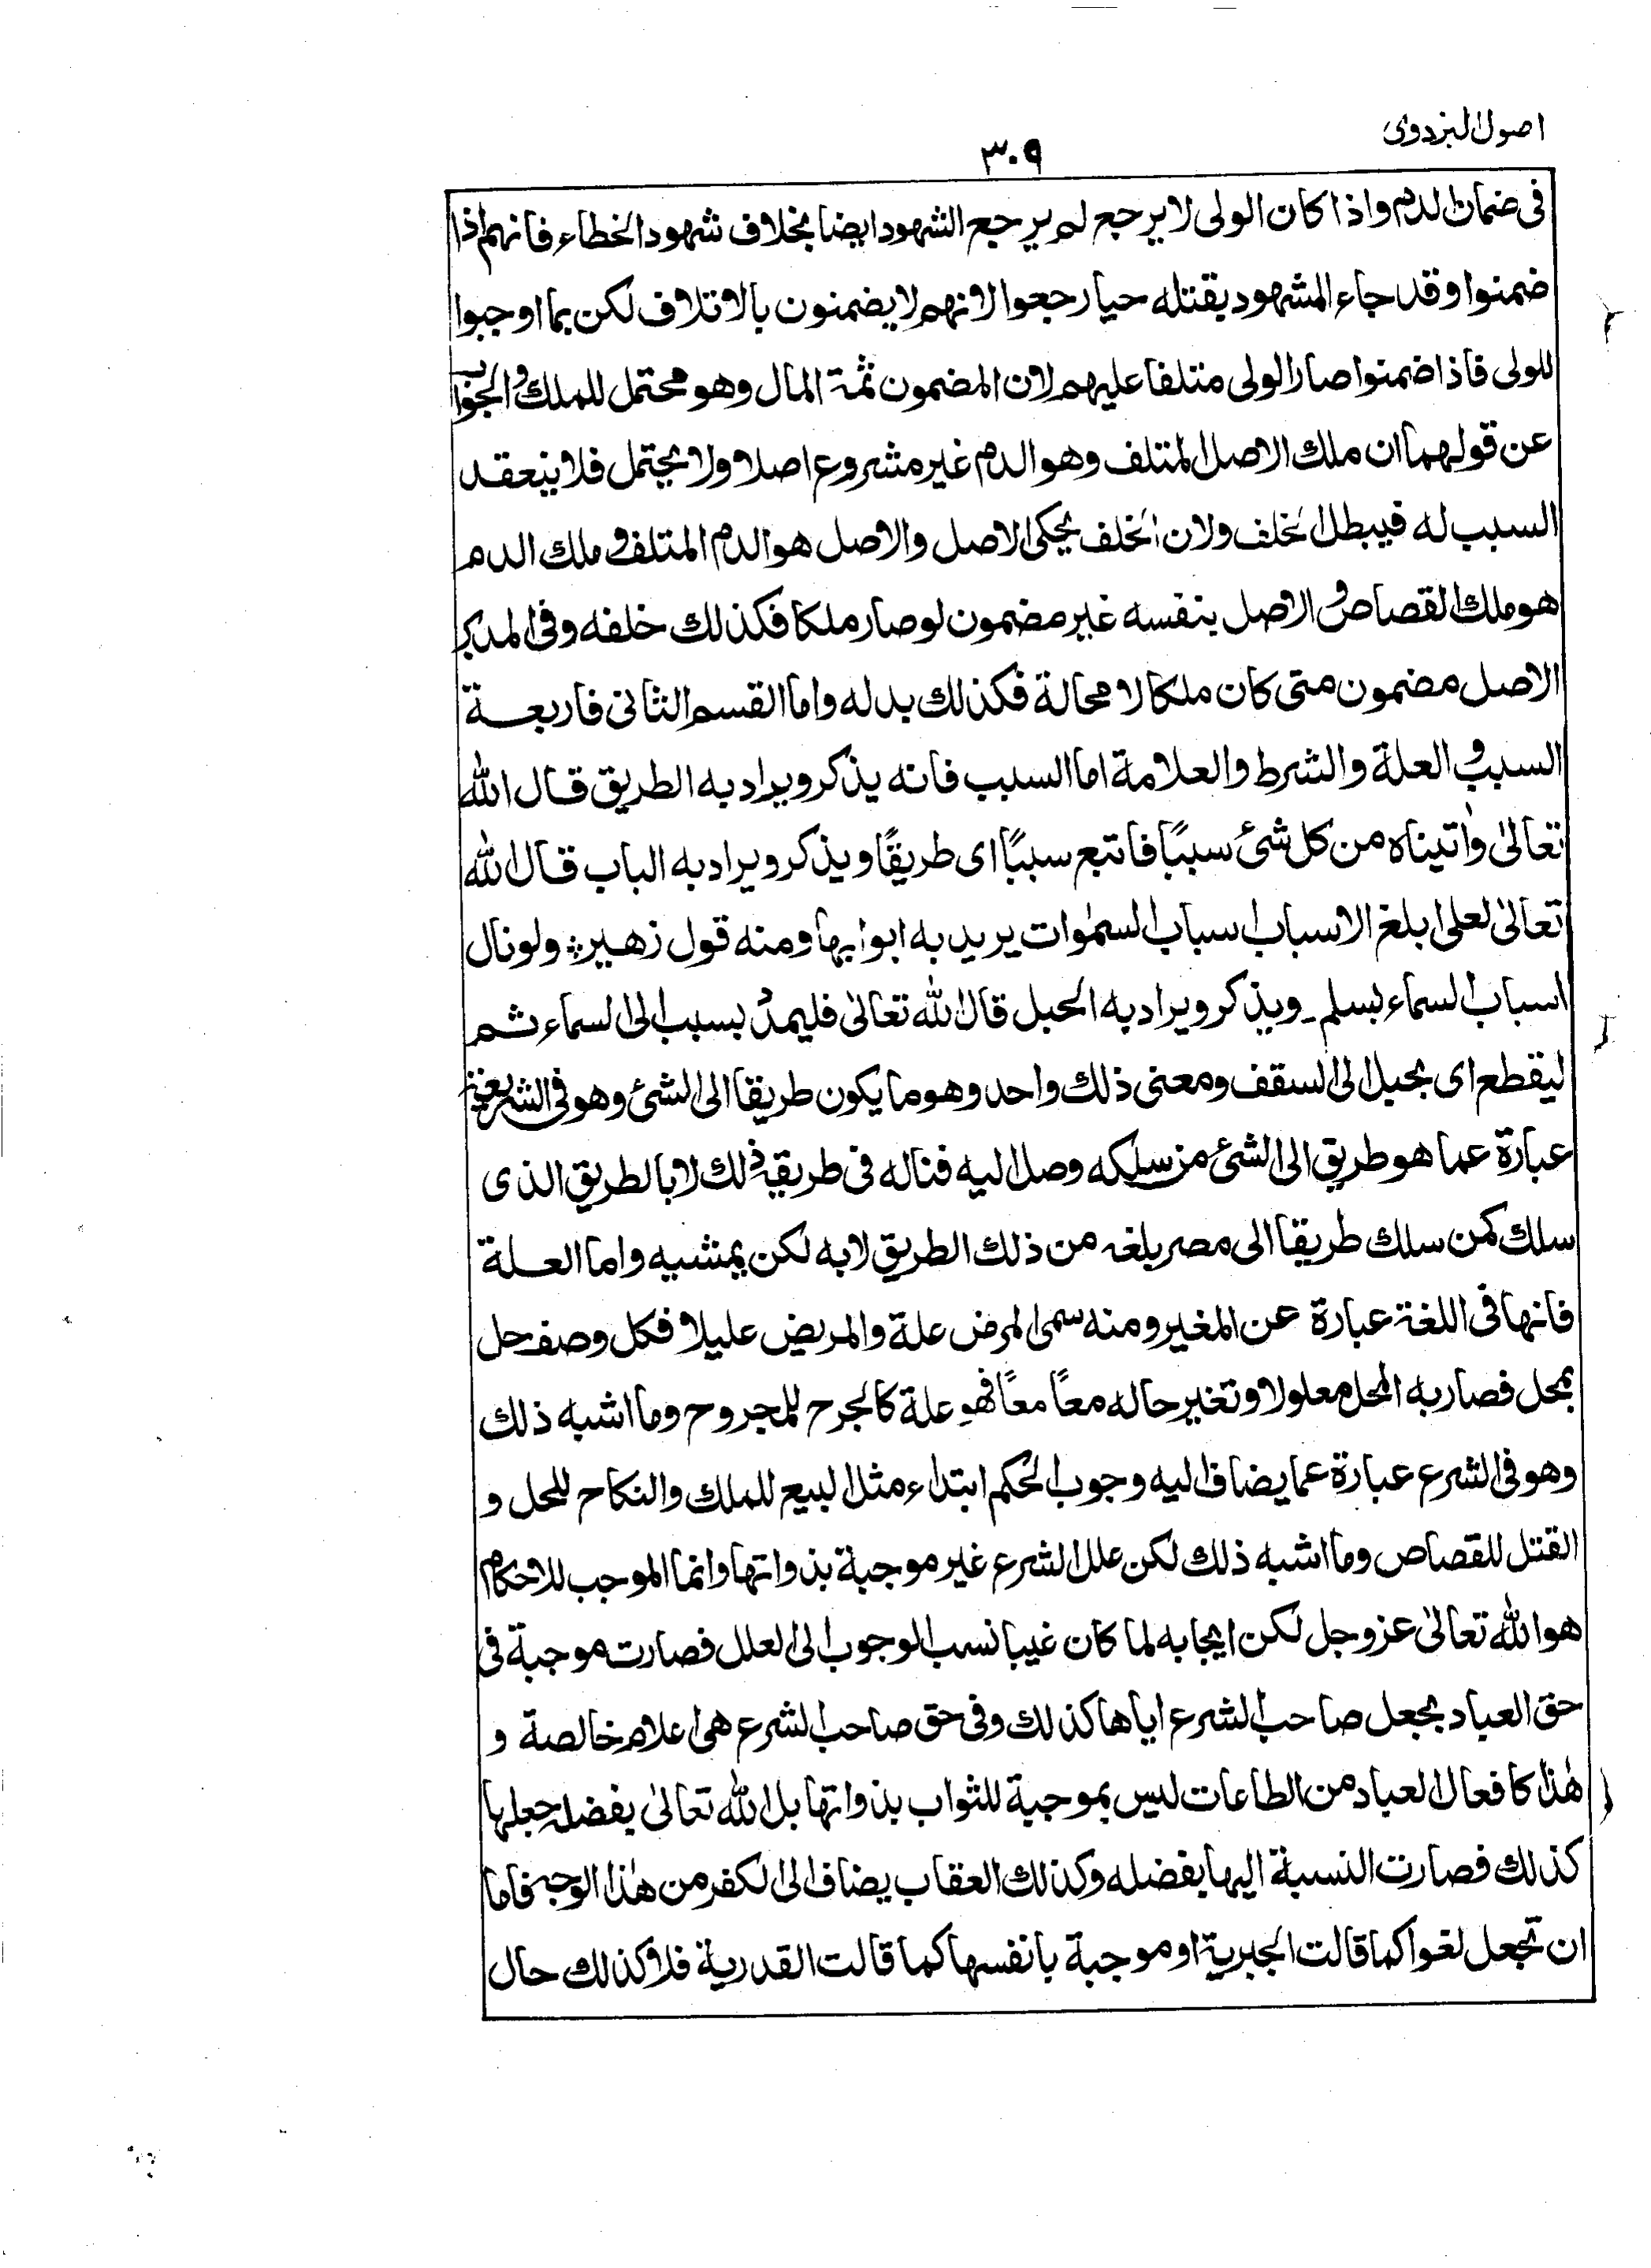 اصول البزدوی
۳۰۹
فی ضمان الدم واذا کان الولی لا یرجع لم یرجع الشهود ایضا بخلاف شهود الخطاء فانهم اذا
ضمنوا وقد جاء المشهود بقتله حیا رجعوا لانهم لا یضمنون بالاتلاف لکن بما اوجبوا
للولی فاذا ضمنوا صار الولی متلفا علیهم لان المضمون ثمة المال وهو محتمل للملك والجواب
عن قولهما ان ملك الاصل المتلف وهو الدم غیر مشروع اصلا ولا یحتمل فلا ینعقد
السبب له فیبطل الخلف ولان الخلف یحکی الاصل والاصل هو الدم المتلف و ملك الدم
هو ملك القصاص و الاصل بنفسه غیر مضمون لو صار ملکا فکذلك خلفه وفی المدبر
الاصل مضمون متی کان ملکا لا محالة فکذلك بدله واما القسم الثانی فاربعة
السبب و العلة والشرط والعلامة اما السبب فانه یذکر ویراد به الطریق قال الله
تعالیٰ واٰتیناه من کل شئ سببًا فاتبع سببًا ای طریقًا ویذکر ویراد به الباب قال الله
تعالیٰ لعلی ابلغ الاسباب اسباب السمٰوات یرید به ابوابها ومنه قول زهیر ؞ ولو نال
اسباب السماء بسلم ـ ویذکر ویراد به الحبل قال الله تعالیٰ فلیمدُد بسبب الی السماء ثم
لیقطع ای بحبل الی السقف ومعنی ذلك واحد وهو ما یکون طریقا الی الشئ وهو فی الشریعة
عبارة عما هو طریق الی الشئ من سلکه وصل الیه فناله فی طریقه ذلك لا بالطریق الذی
سلك کمن سلك طریقا الی مصر بلغه من ذلك الطریق لا به لکن بمشیه واما العلة
فانها فی اللغة عبارة عن المغیر ومنه سمی المرض علة والمریض علیلا فکل وصف حل
بمحل فصار به المحل معلولا وتغیر حاله معًا معًا فهو علة کالجرح للمجروح وما اشبه ذلك
وهو فی الشرع عبارة عما یضاف الیه وجوب الحکم ابتداء مثل البیع للملك والنکاح للحل و
القتل للقصاص وما اشبه ذلك لکن علل الشرع غیر موجبة بذواتها وانما الموجب للاحکام
هو الله تعالیٰ عز وجل لکن ایجابه لما کان غیبا نسب الوجوب الی العلل فصارت موجبة فی
حق العباد بجعل صاحب الشرع ایاها کذلك وفی حق صاحب الشرع هی اعلام خالصة و
هٰذا کافعال العباد من الطاعات لیس بموجبة للثواب بذواتها بل الله تعالیٰ بفضله جعلها
کذلك فصارت النسبة الیها بفضله وکذلك العقاب یضاف الی الکفر من هٰذا الوجه فاما
ان تجعل لغوا کما قالت الجبریة او موجبة بانفسها کما قالت القدریة فلا وکذلك حال